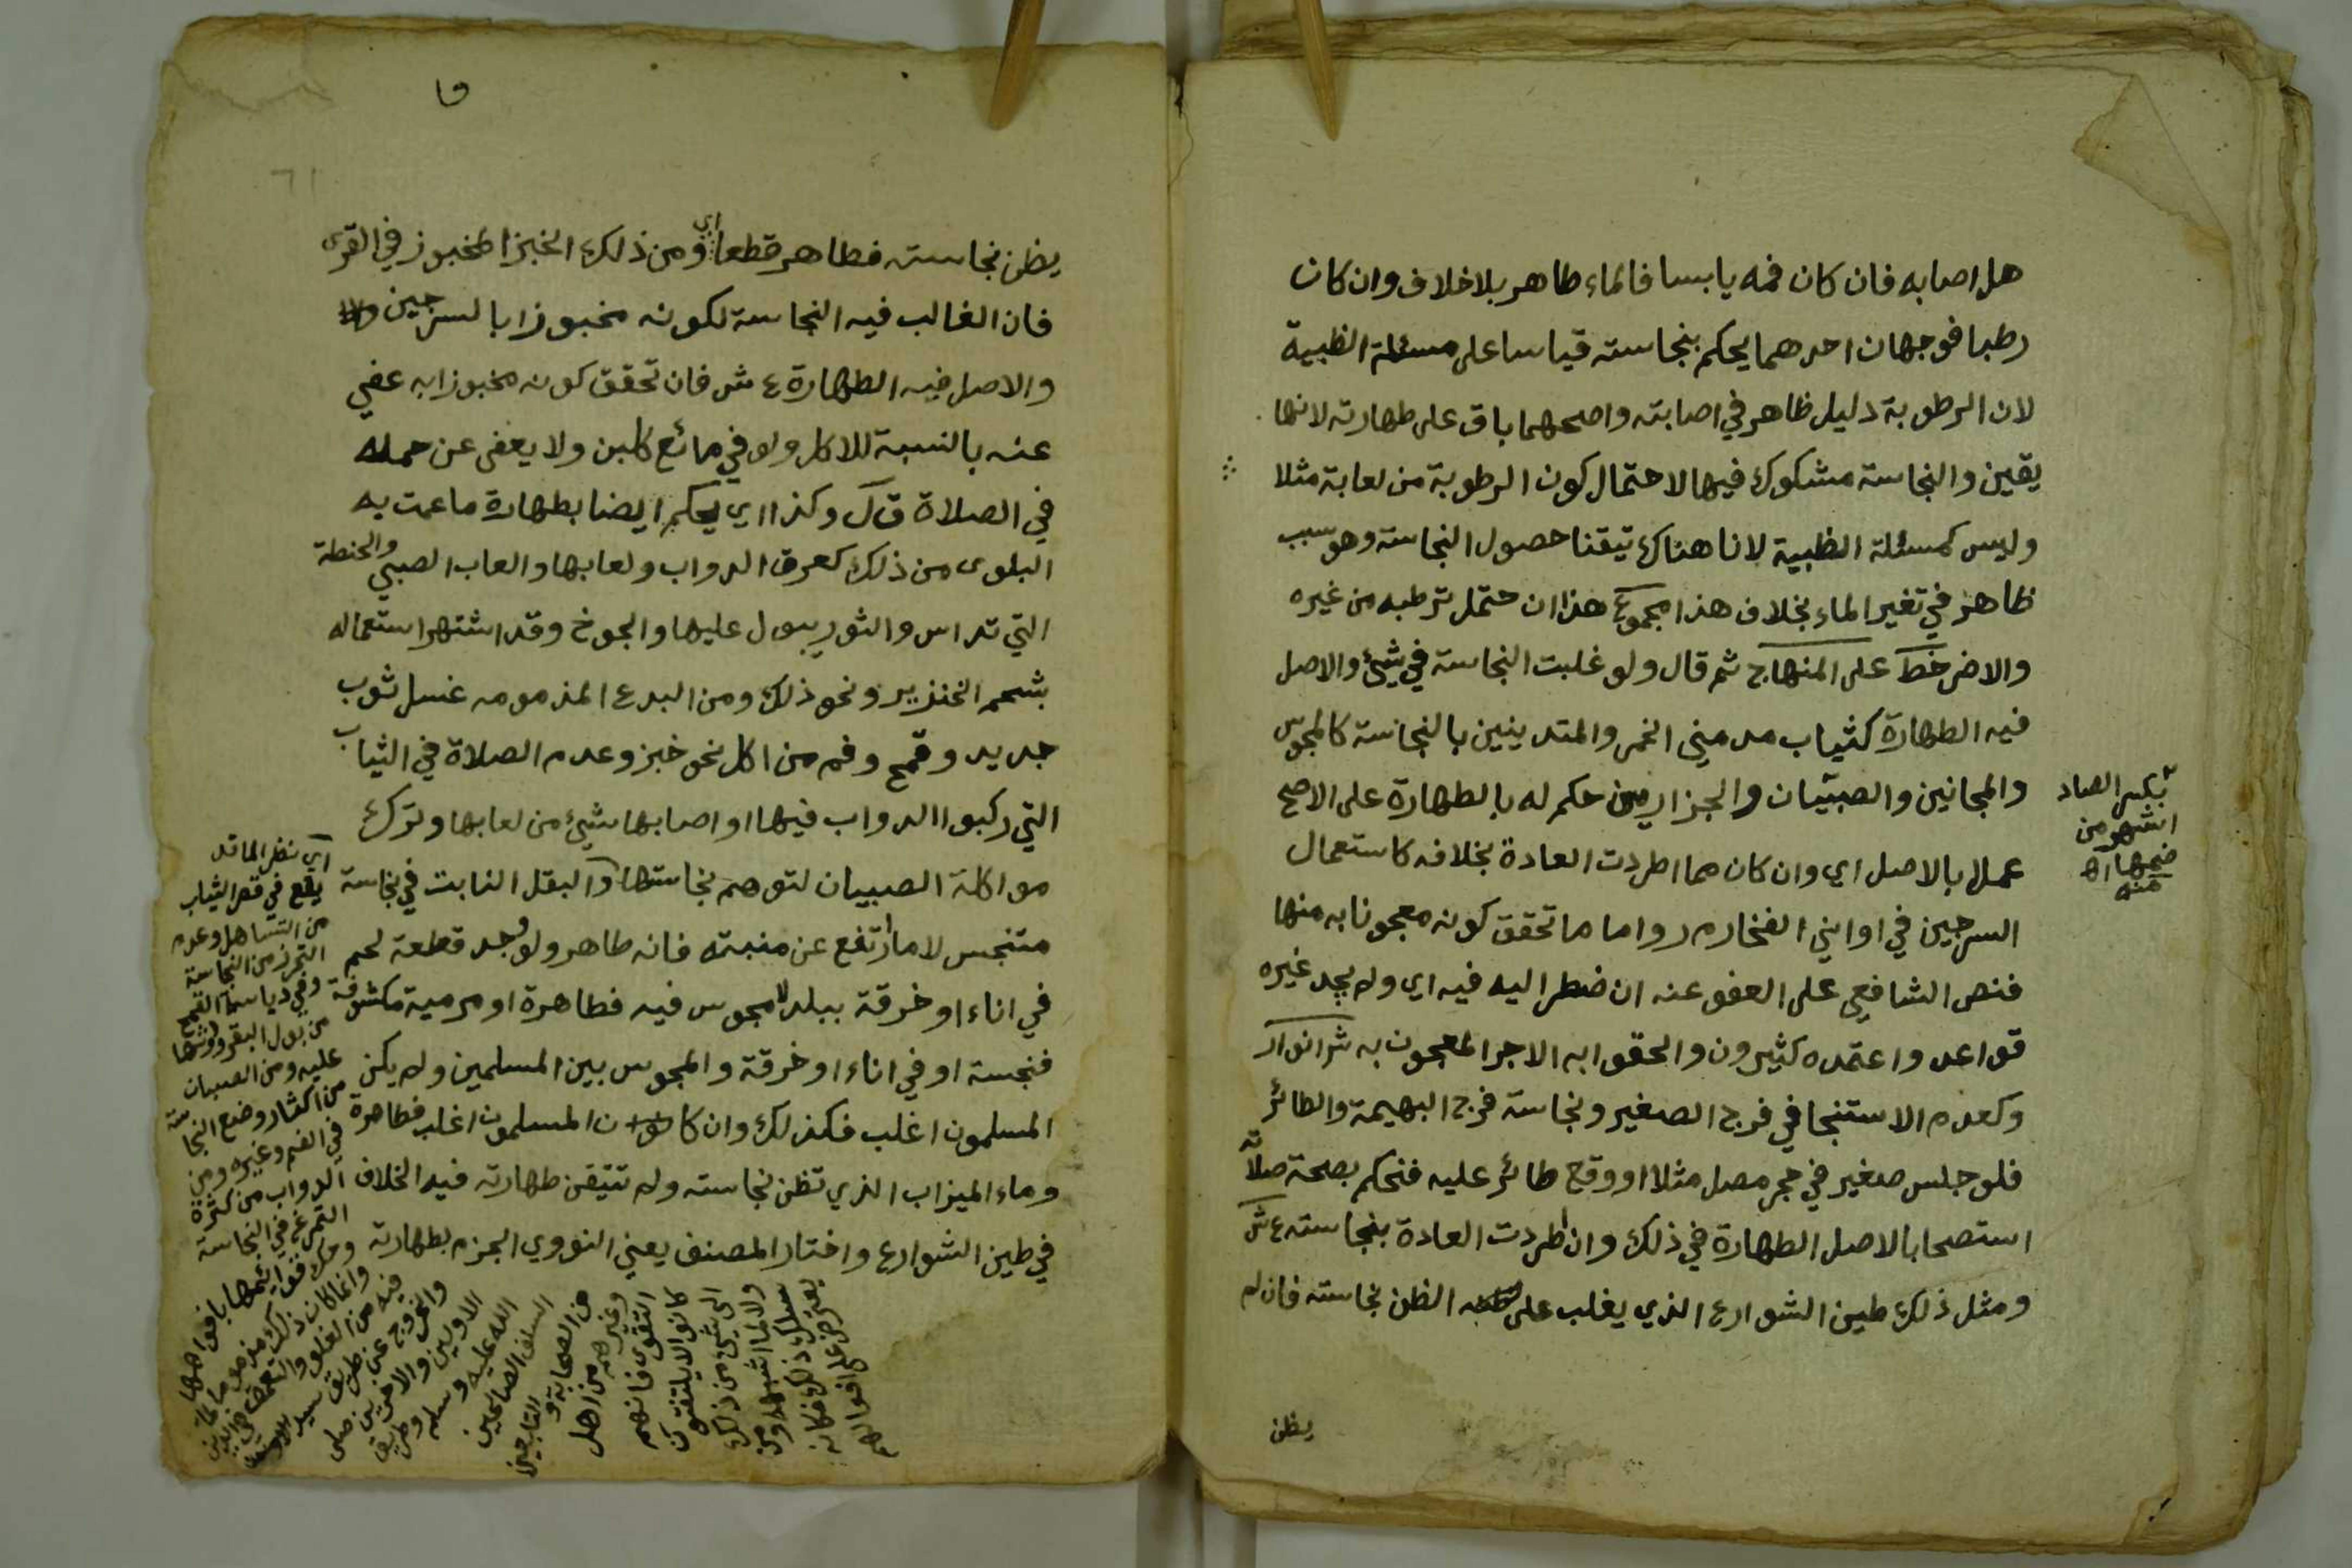 هل اصابه فان كان فمه يابسا فالماء طاهر بلا خلاف وان كان
رطبا فوجهان احدهما يحكم بنجاسته قياسا على مسئلة الظبية
لان الرطوبة دليل ظاهر في اصابته واصحهما باق على طهارته لانها
يقين والنجاسة مشكوك فيها لاحتمال كون الرطوبة من لعابة مثلا
وليس كمسئلة الظبية لانا هناك تيقنا حصول النجاسة وهو سبب
ظاهر في تغير الماء بخلاف هذا مجموع هذا ان حتمل ترطبه من غيره
والاضر خط على المنهاج ثم قال ولو غلبت النجاسة في شيئ والاصل
فيه الطهارة كثياب مدمني الخمر والمتدينين بالنجاسة كالمجوس
والمجانين والصبيان والجزارين حكم له بالطهارة على الاصح
عملا بالاصل اي وان كان مما اطردت العادة بخلافه كاستعمال
السرجين في اواني الفخار م ر واما ما تحقق كونه معجونا به منها
فنص الشافعي على العفو عنه ان ضطر اليه فيه اي ولم يجد غيره
قواعد واعتمده كثيرون والحقوا به الاجر المعجون به شر انوار
وكعدم الاستنجا في فرج الصغير ونجاسة فرج البهيمة والطائر
فلو جلس صغير في حجر مصل مثلا او وقع طائر عليه فنحكم بصحة صلاته
استصحابا لاصل الطهارة في ذلك وان اطردت العادة بنجاسته ع ش
ومثل ذلك طين الشوارع الذي يغلب على الظن نجاسته فان لم
يظن
بكسر الصاد
اشهر من
ضمها اه
منه
يظن نجاسته فطاهر قطعا اي ومن ذلك الخبز المخبوز في القرى
فان الغالب فيه النجاسة لكونه مخبوزا بالسرجين
والاصل فيه الطهارة ع ش فان تحقق كونه مخبوزا به عفي
عنه بالنسبة للاكل ولو في مائع كلبن ولا يعفى عن حمله
في الصلاة ق ل وكذا اي يحكم ايضا بطهارة ما عمت به
البلوى من ذلك كعرق الدواب ولعابها والعاب الصبي والحنطة
التي تداس والثور يبول عليها والجوخ وقد اشتهر استعماله
بشحم الخنزير ونحو ذلك ومن البدع المذمومه غسل ثوب
جديد وقمح وفم من اكل نحو خبز وعدم الصلاة في الثياب
التي ركبوا الدواب فيها او اصابها شيئ من لعابها وترك
مواكلة الصبيان لتوهم نجاستها والبقل النابت في نجاسة
متنجس لا ما ارتفع عن منبته فانه طاهر ولو وجد قطعة لحم
في اناء او خرقة ببلد لا مجوس فيه فطاهرة او مرمية مكشوفة
فنجسة او في اناء او خرقة والمجوس بين المسلمين ولم يكن
المسلمون اغلب فكذلك وان كان المسلمون اغلب فطاهرة
وماء الميزاب الذي تظن نجاسته ولم تتيقن طهارته فيه الخلاف
في طين الشوارع واختار المصنف يعني النووي الجزم بطهارته
اي نظر الما قد
يقع في قصر الثياب
من التساهل وعدم
التحرز من النجاسة
وفي دياسة القمح
من بول البقر وروثها
عليه ومن الصبيان
من اكثار وضع النجاسة
في الفم وغيره ومن
الدواب من كثرة
التمرغ في النجاسة
وحك قوائمها بافواهها
وانما كان ذلك مذموما لما
فيه من الغلو والتعمق في الدين
والخروج عن طريق سيد
الاولين والاخرين صلى
الله عليه وسلم وطريق
السلف الصالحين
من الصحابة والتابعين
وغيرهم من اهل
التقوى فانهم
كانوا لا يلتفتون
الى شيئ من ذلك
ولا لما اشبهه ومن
سلك ذلك فكانه
يعترض على افعالهم